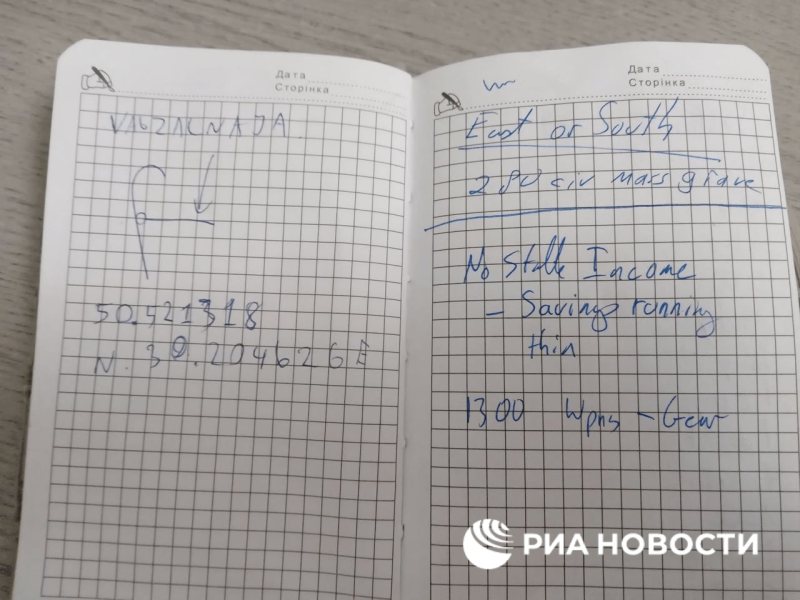 Дата
Сторінка
VAGZALNAJA
50.521318
N. 30.204626E
Дата
Сторінка
East or South
280 civ mass grave
No stable Income
- Savings running
thin
1300 Wpns - Gear
РИА НОВОСТИ